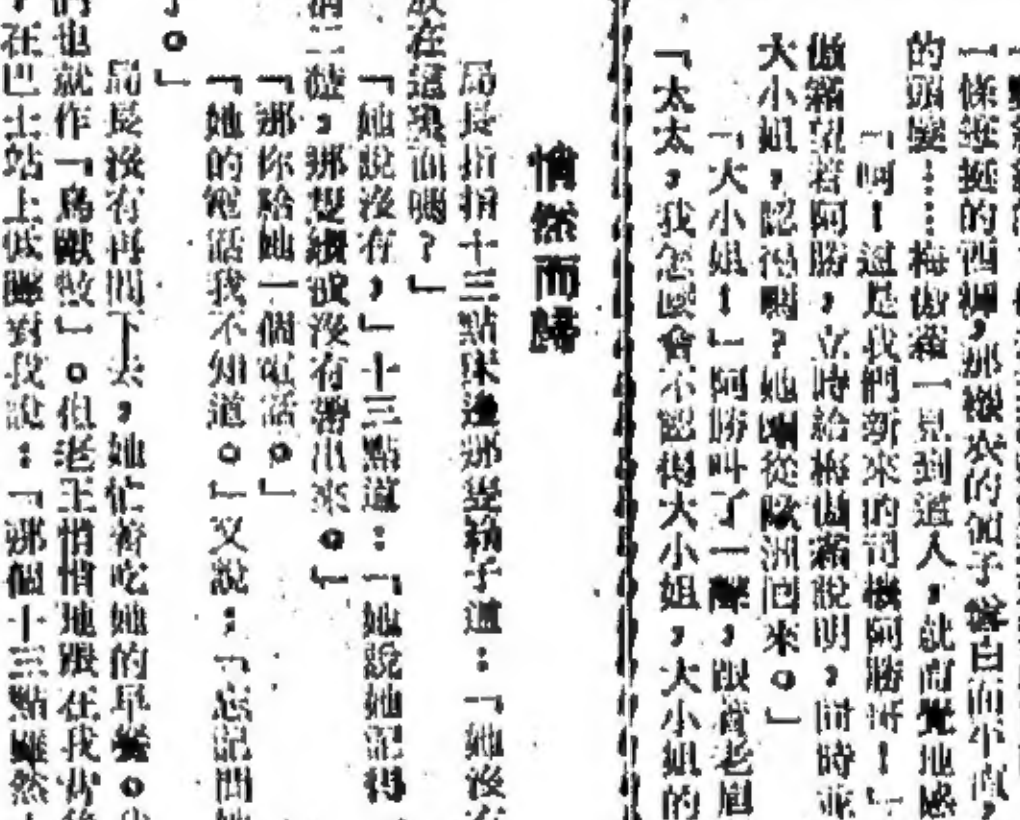 一條筆挺的西褲，那襯衣的領子潔白而平直，
的頭髮……梅傲霜一見到這人，就有覺地感
「啊！這是我們新來的司機阿勝哥！」
傲霜望着阿勝，立時給梅傲霜說明，同時並
大小姐，認得嗎？她剛從歐洲回來。」
「大小姐！」阿勝叫了一聲，跟着老
「太太，我怎麼會不認得大小姐，大小姐的
悄然而歸
局長指指十三點床邊那隻箱子道：「她沒有
放在這裏面嗎？」
「她說沒有，」十三點道：「她說她記得
清二楚，那隻
沒有帶出來。」
「那你給她一個電話。」
「她的電話我不知道。」又說：「忘記問她
了。」
局長沒有再問下去，她忙着吃她的早餐。
們也就作「鳥獸散」。但老王悄悄地跟在我背後
在巴士站上低聲對我說：「那個十三點雖然